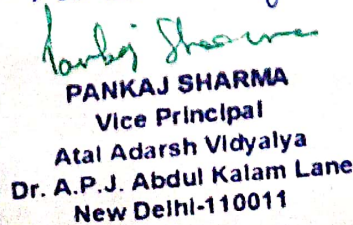 Pankaj Sharma
PANKAJ SHARMA
Vice Principal
Atal Adarsh Vidyalya
Dr. A.P.J. Abdul Kalam Lane
New Delhi-110011